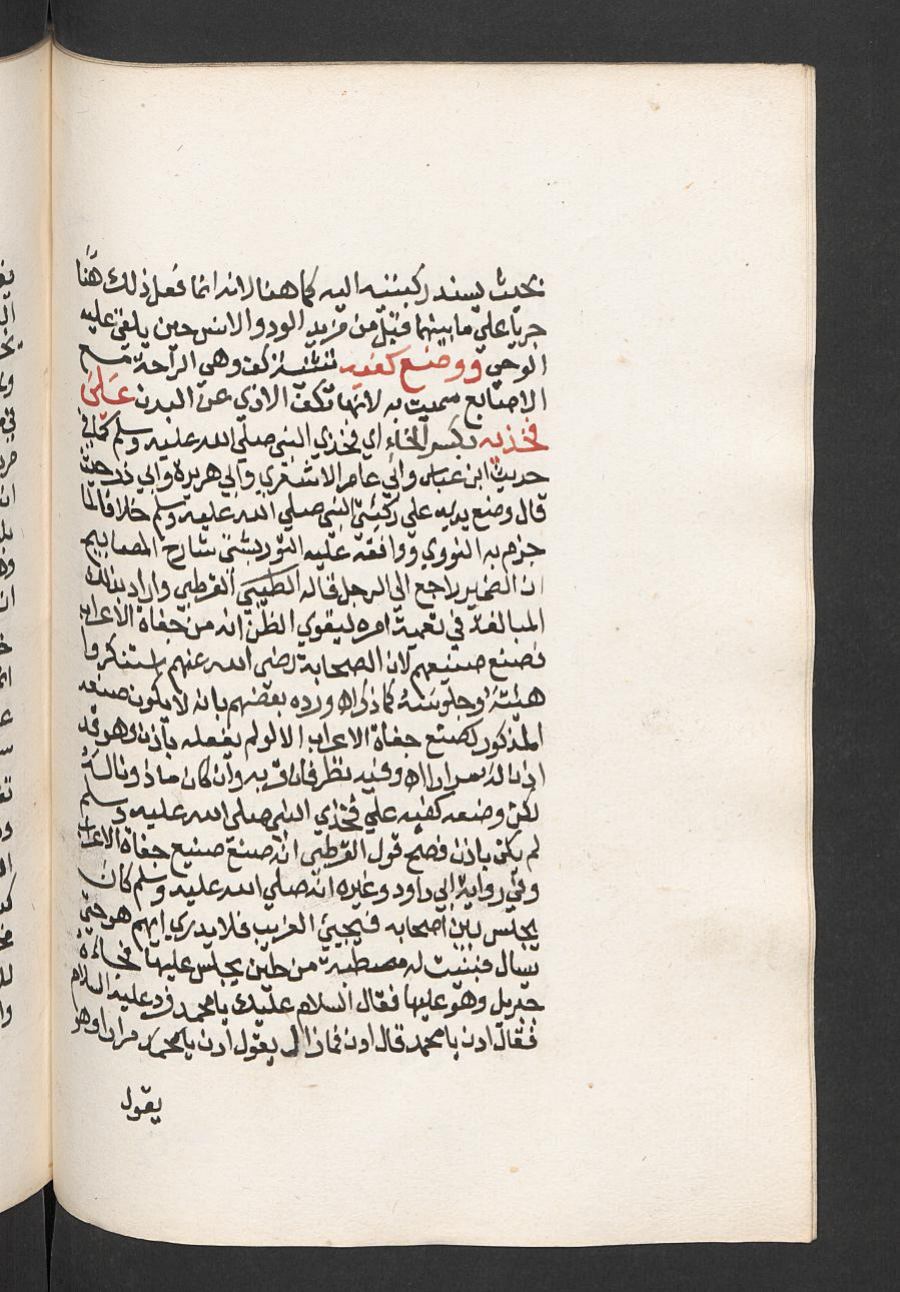 بحيث يسند ركبتيه اليه كما هنا لانه انما فعل ذلك هنا
جريا علي ما بينهما قبل من مزيد الود والانس حين يلقي عليه
الوحي ووضع كفيه تثنية كف وهي الراحة مع
الاصابع سميت به لانها تكف الاذي عن البدن علي
فخذيه بكسر الخاء اي فخذي النبي صلي الله عليه وسلم كما في
حديث ابن عباس وابي عامر الاشعري وابي هريرة وابي ذر حيث
قال وضع يديه علي ركبتي النبي صلي الله عليه وسلم خلافا لما
جزم به النووي ووافقه عليه التوربشتي شارح المصابيح
ان الضمير راجع الي الرجل قاله الطيبي القرطبي واراد بذلك
المبالغة في تعمية امره ليقوي الظن انه من جفاة الاعراب
فصنع صنيعهم لان الصحابة رضي الله عنهم استنكروا
هيئته وجلوسه كما ذكراه ورده بعضهم بانه لا يكون صنعه
المذكور كصنع جفاة الاعراب الا لو لم يفعله باذن وهو قد
اذن له مرارا اه وفيه نظر فان قربه وان كان ماذونا له
لكن وضعه كفيه علي فخذي النبي صلي الله عليه وسلم
لم يكن باذن فصح قول القرطبي انه صنع صنيع جفاة الاعراب
وفي رواية ابي داود وغيره انه صلي الله عليه وسلم كان
يجلس بين اصحابه فيجيئ الغريب فلا يدري ايهم هو حتي
يسال فبنيت له مصطبة من طين يجلس عليها فجاءه
جبريل وهو عليها فقال السلام عليك يا محمد فرد عليه السلام
فقال ادن يا محمد قال ادن فما زال يقول ادن يا محمد مرارا وهو
يقول